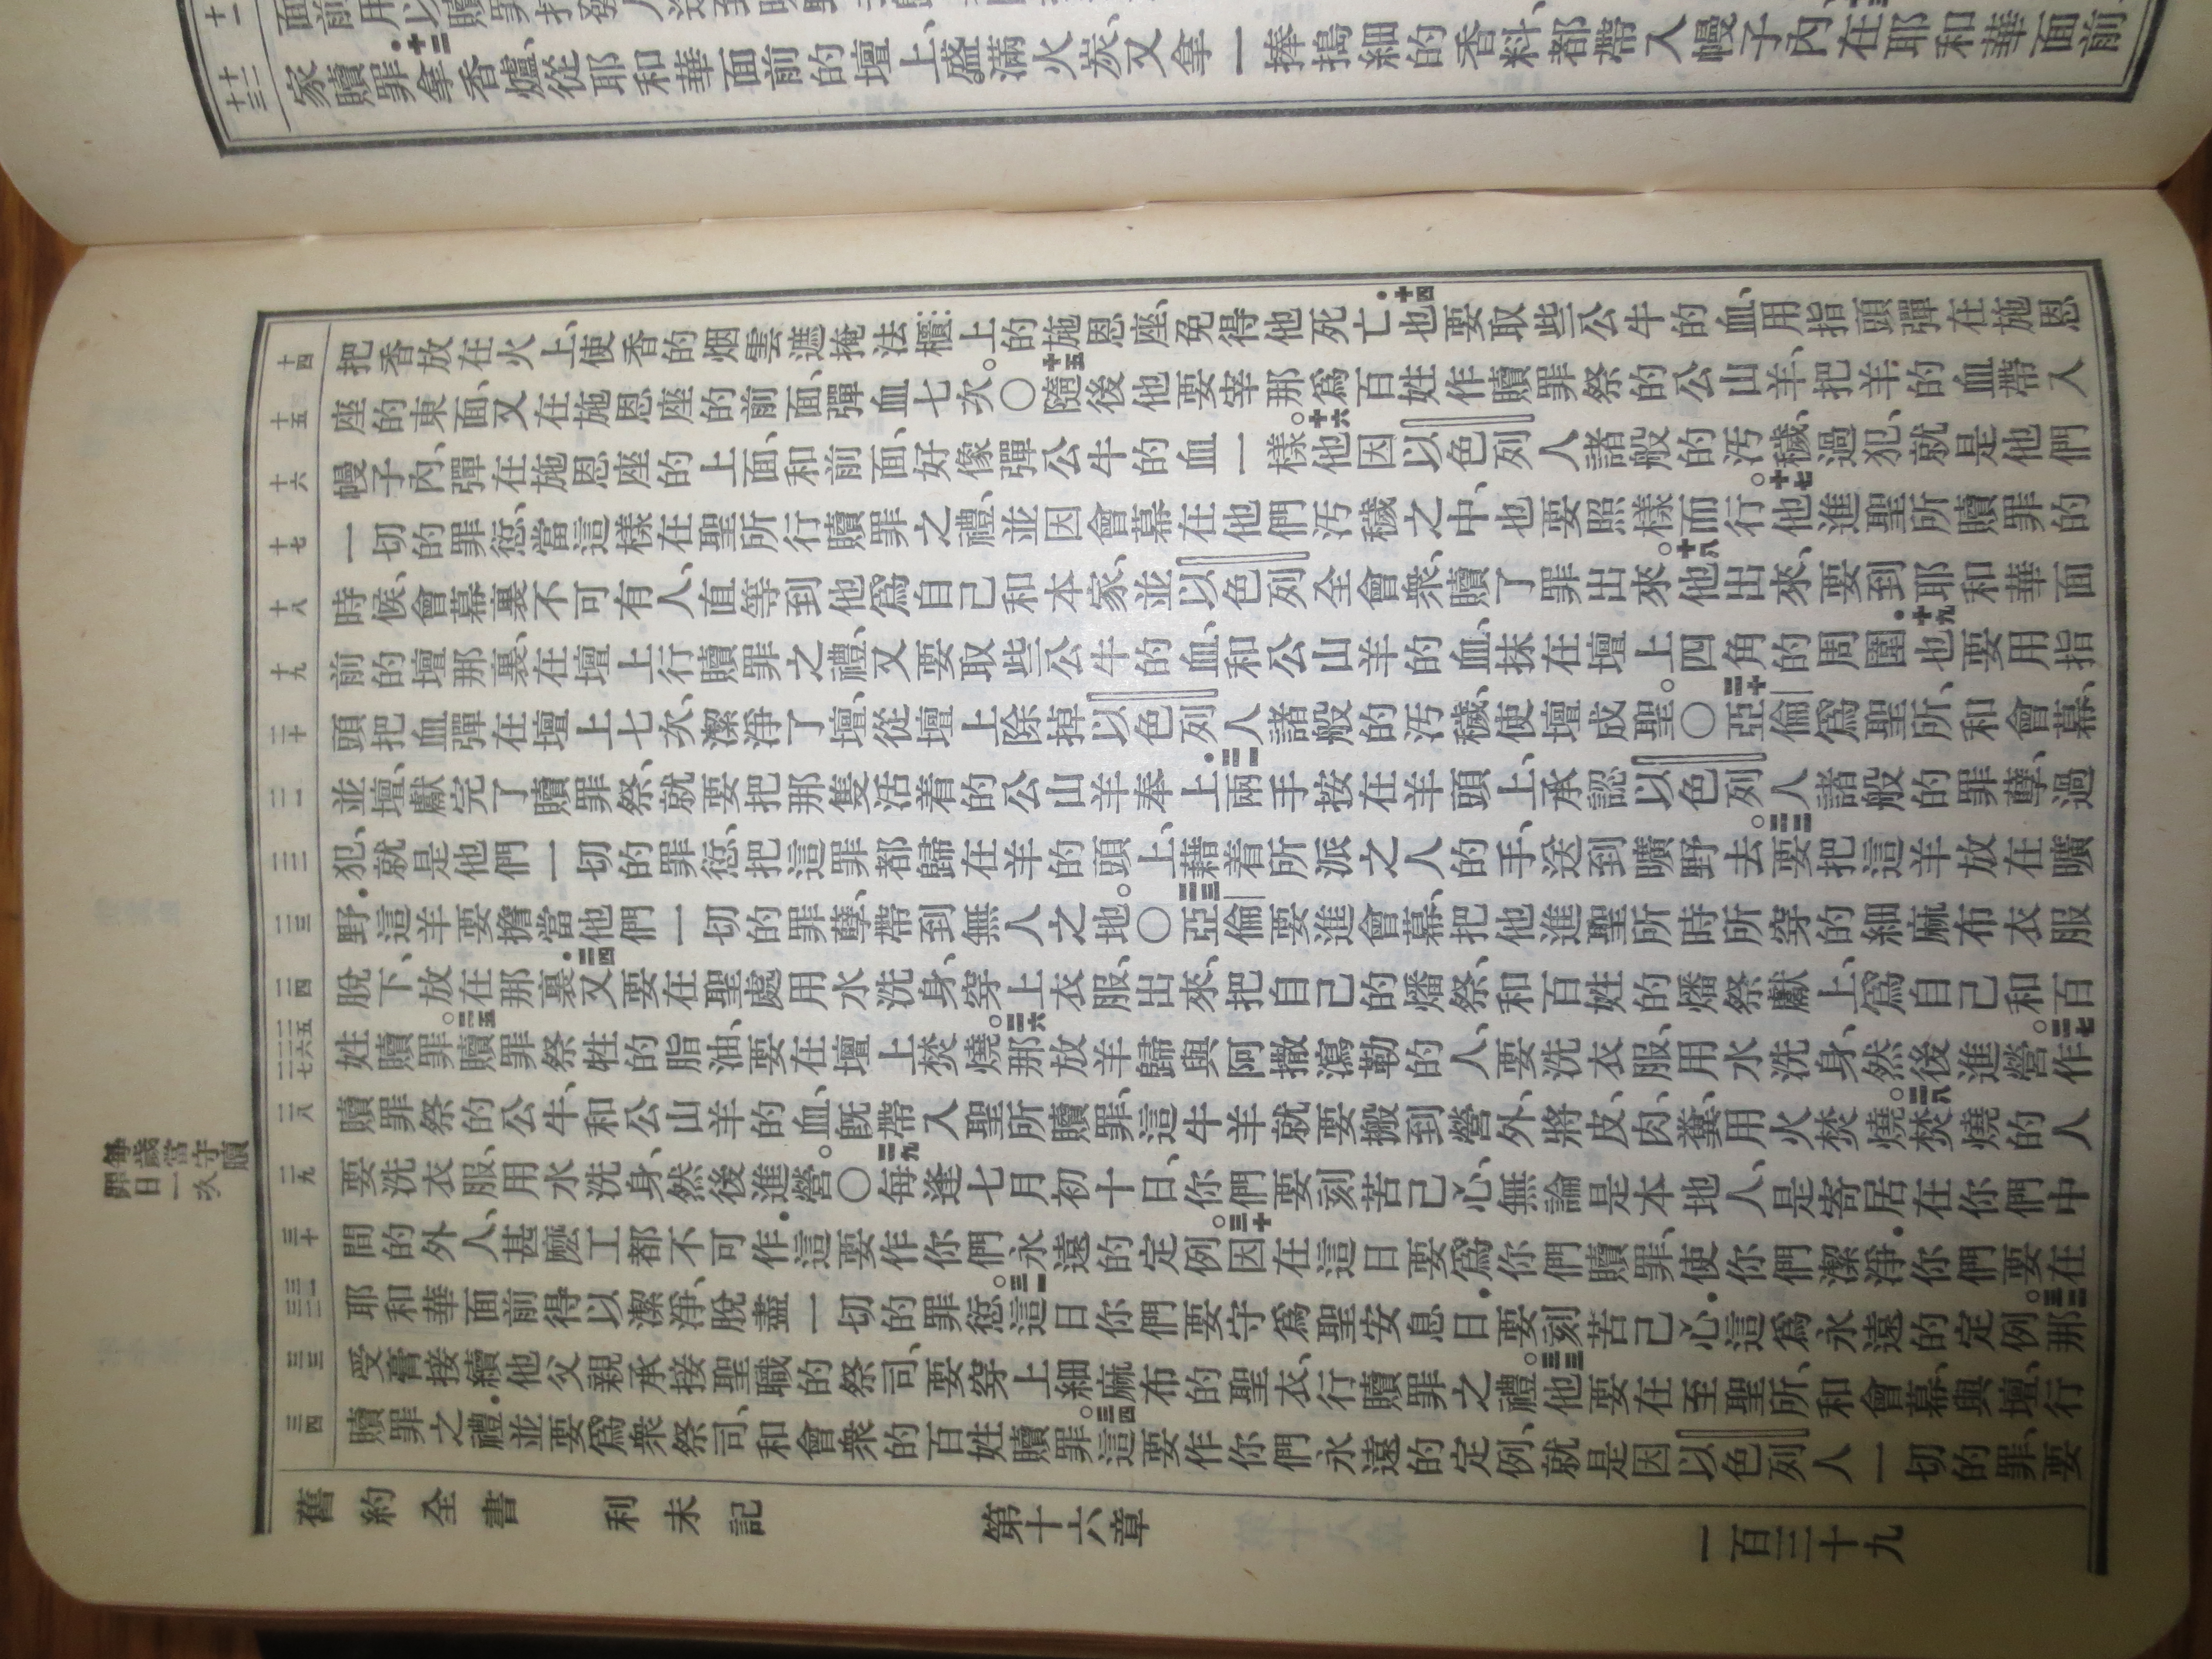 家贖罪．十二拿香爐、從耶和華面前的壇上、盛滿火炭、又拿一捧搗細的香料、都帶入幔子內、在耶和華面前、
十二
十三
把香放在火上、使香的烟雲遮掩法櫃上的施恩座、免得他死亡．十四也要取些公牛的血、用指頭彈在施恩
座的東面、又在施恩座的前面、彈血七次。〇十五隨後他要宰那爲百姓作贖罪祭的公山羊、把羊的血帶入
幔子內、彈在施恩座的上面、和前面、好像彈公牛的血一樣。十六他因以色列人諸般的汚穢、過犯、就是他們
一切的罪愆、當這樣在聖所行贖罪之禮、並因會幕在他們汚穢之中、也要照樣而行。十七他進聖所贖罪的
時候、會幕裏不可有人、直等到他爲自己和本家、並以色列全會衆、贖了罪出來。十八他出來、要到耶和華面
前的壇那裏、在壇上行贖罪之禮、又要取些公牛的血、和公山羊的血、抹在壇上四角的周圍．十九也要用指
頭把血彈在壇上七次、潔淨了壇、從壇上除掉以色列人諸般的汚穢、使壇成聖。〇二十亞倫爲聖所、和會幕、
並壇、獻完了贖罪祭、就要把那隻活着的公山羊奉上．二一兩手按在羊頭上、承認以色列人諸般的罪孽、過
犯、就是他們一切的罪愆、把這罪都歸在羊的頭上、藉着所派之人的手、送到曠野去。二二要把這羊放在曠
野．這羊要擔當他們一切的罪孽、帶到無人之地。〇二三亞倫要進會幕、把他進聖所時所穿的細麻布衣服
脫下、放在那裏．二四又要在聖處用水洗身、穿上衣服、出來、把自己的燔祭、和百姓的燔祭獻上、爲自己和百
姓贖罪。二五贖罪祭牲的脂油、要在壇上焚燒。二六那放羊歸與阿撒瀉勒的人、要洗衣服、用水洗身、然後進營。二七作
贖罪祭的公牛、和公山羊的血、旣帶入聖所贖罪、這牛羊就要搬到營外、將皮、肉、糞、用火焚燒。二八焚燒的人
要洗衣服、用水洗身、然後進營。〇二九每逢七月初十日、你們要刻苦己心、無論是本地人、是寄居在你們中
間的外人、甚麽工都不可作．這要作你們永遠的定例。三十因在這日要爲你們贖罪、使你們潔淨．你們要在
耶和華面前得以潔淨、脫盡一切的罪愆。三一這日你們要守爲聖安息日．要刻苦己心．這爲永遠的定例。三二那
受膏接續他父親承接聖職的祭司、要穿上細麻布的聖衣、行贖罪之禮。三三他要在至聖所、和會幕、與壇、行
贖罪之禮．並要爲衆祭司、和會衆的百姓贖罪。三四這要作你們永遠的定例、就是因以色列人一切的罪、要
十四
十五
十六
十七
十八
十九
二十
二一
二二
二三
二四
二五
二六
二七
二八
二九
三十
三一
三二
三三
三四
每歲當守贖
罪日一次
舊約全書 利未記 第十六章 一百三十九